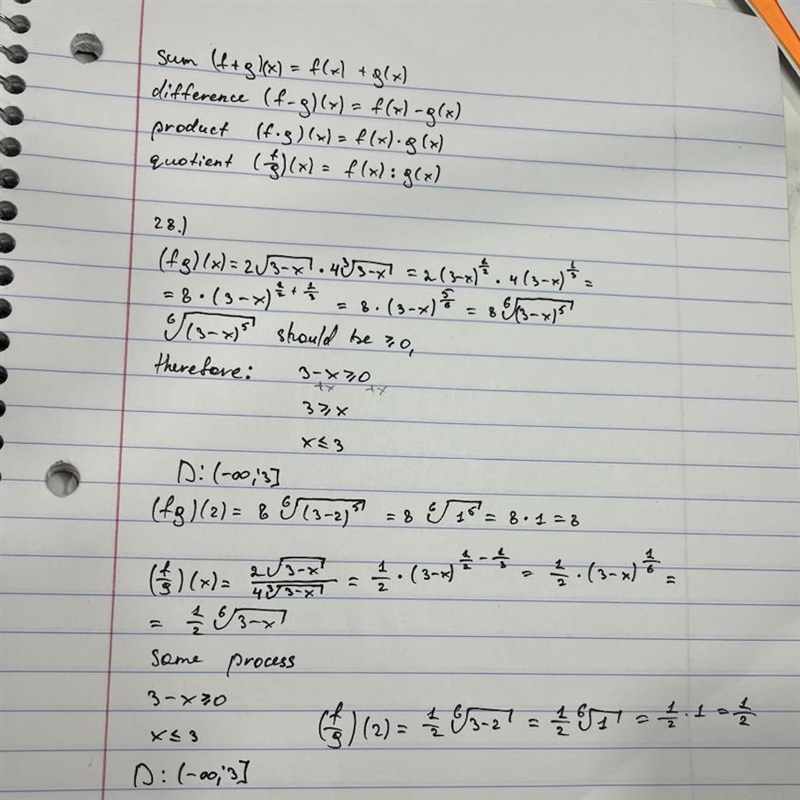 sum (f+g)(x) = f(x) + g(x)
difference (f-g)(x) = f(x) - g(x)
product (f·g)(x) = f(x)·g(x)
quotient (f/g)(x) = f(x) : g(x)
28.)
(fg)(x) = 2√(3-x) · 4∛(3-x) = 2(3-x)^(1/2) · 4(3-x)^(1/3) =
= 8 · (3-x)^(1/2 + 1/3) = 8 · (3-x)^(5/6) = 8 ⁶√((3-x)⁵)
⁶√((3-x)⁵) should be ≥0,
therefore: 3-x≥0
+x +x
3 ≥ x
x ≤ 3
D: (-∞;3]
(fg)(2) = 8 ⁶√((3-2)⁵) = 8 ⁶√(1⁵) = 8 · 1 = 8
(f/g)(x) = 2√(3-x) / 4∛(3-x) = 1/2 · (3-x)^(1/2 - 1/3) = 1/2 · (3-x)^(1/6) =
= 1/2 ⁶√(3-x)
Same process
3-x≥0
x ≤ 3
(f/g)(2) = 1/2 ⁶√(3-2) = 1/2 ⁶√1 = 1/2 · 1 = 1/2
D: (-∞;3]